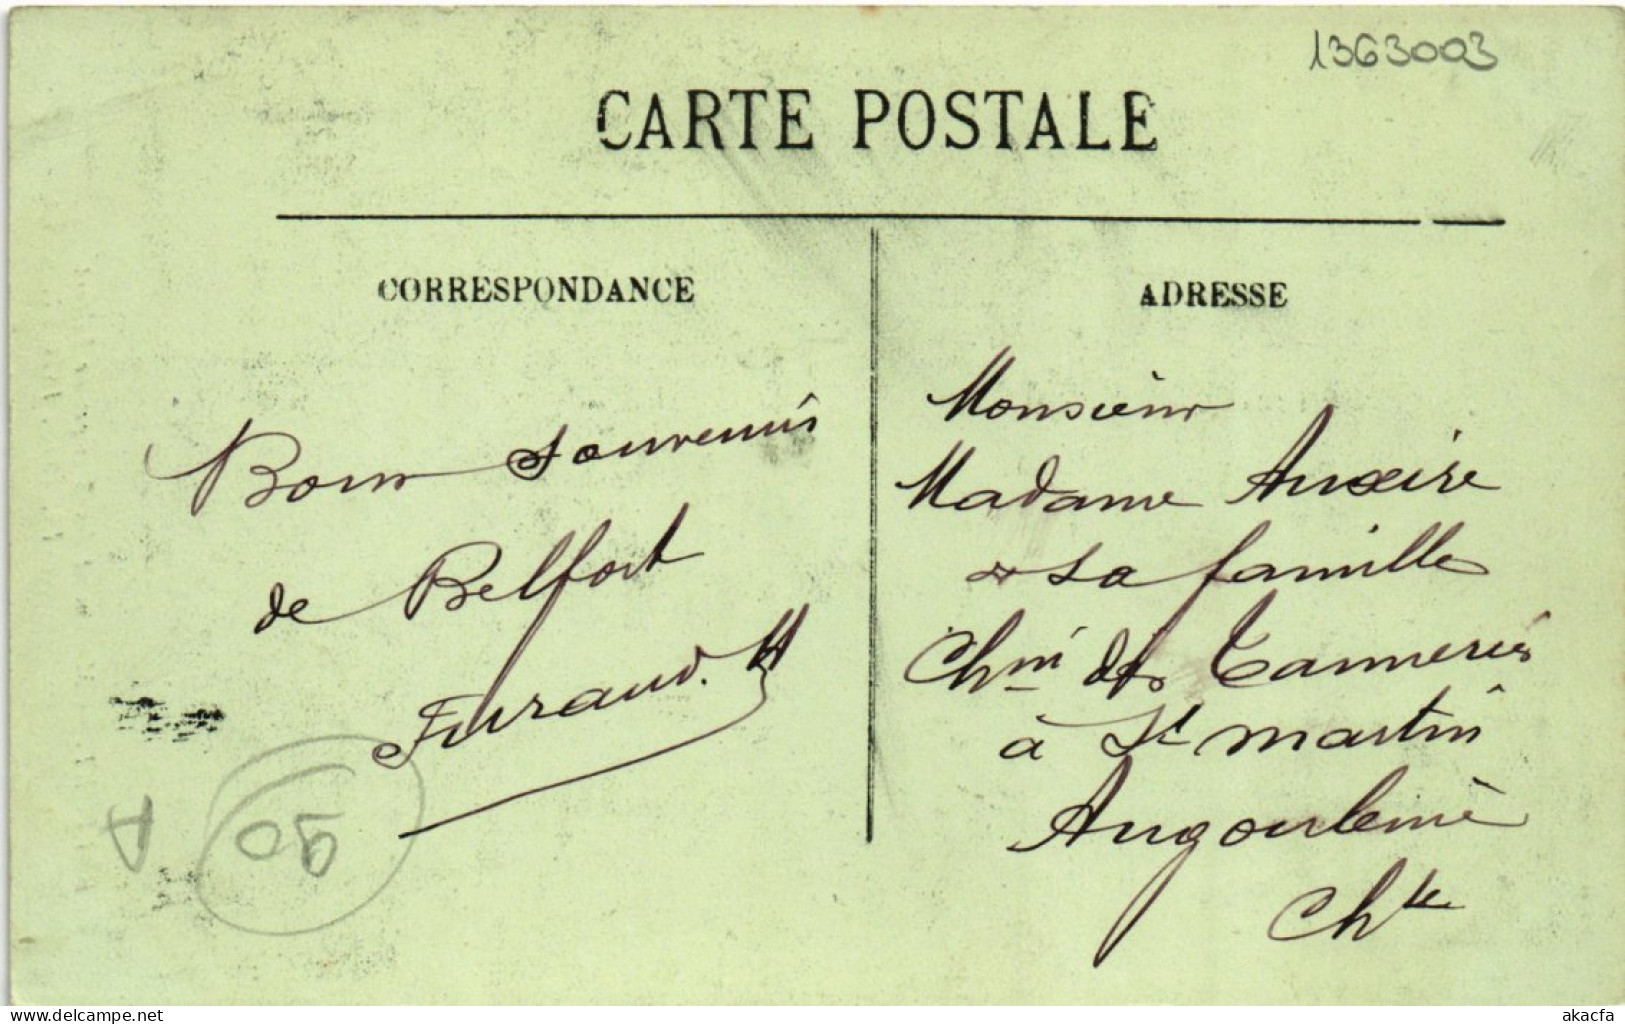 1363003
CARTE POSTALE
CORRESPONDANCE
Bons souvenirs
de Belfort
Furaud. H
90
A
ADRESSE
Monsieur
Madame Auxire
sa famille
Chin des Tanneries
à St martin
Angoulême
Chte
www.delcampe.net
akacfa